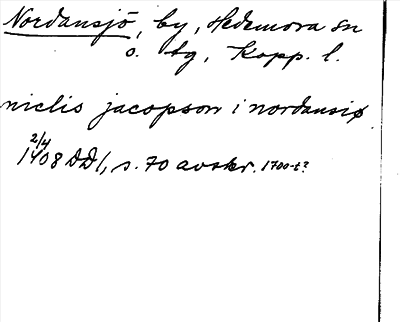 Nordansjö, by, Hedemora sn
o. tg, Kopp. l.
niclis jacopson i nordansiø
2/4
1408 DD1, s. 70 avskr. 1700-t?